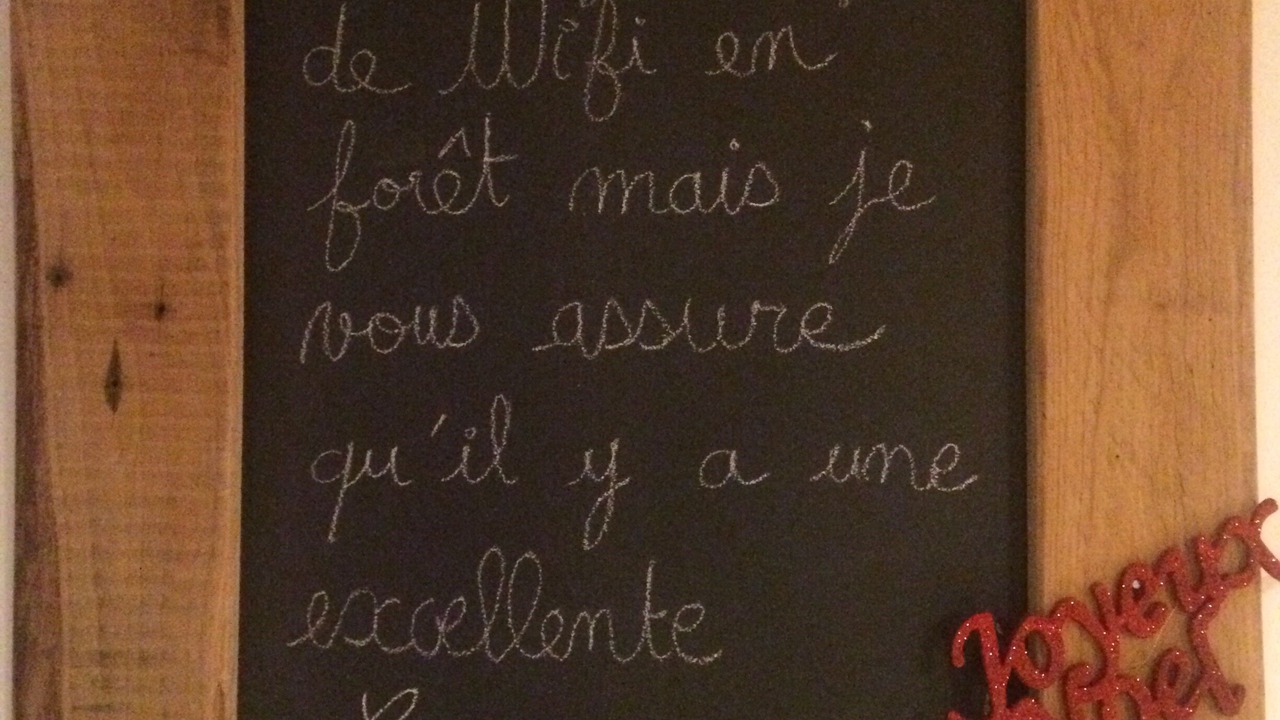 de Wifi en
forêt mais je
vous assure
qu'il y a une
excellente
Joyeux
Noël